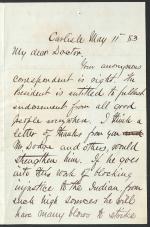 Carlisle May 11 83
My dear Doctor.
Your anonymous
correspondent is right. The
President is entitled to fullest
endorsement from all good
people everywhere. I think a
letter of thanks from you
Mr Dodge and others, would
strengthen him. If he goes
into this work of blocking
injustice to the Indian, from
such high sources he will
have many blows to strike